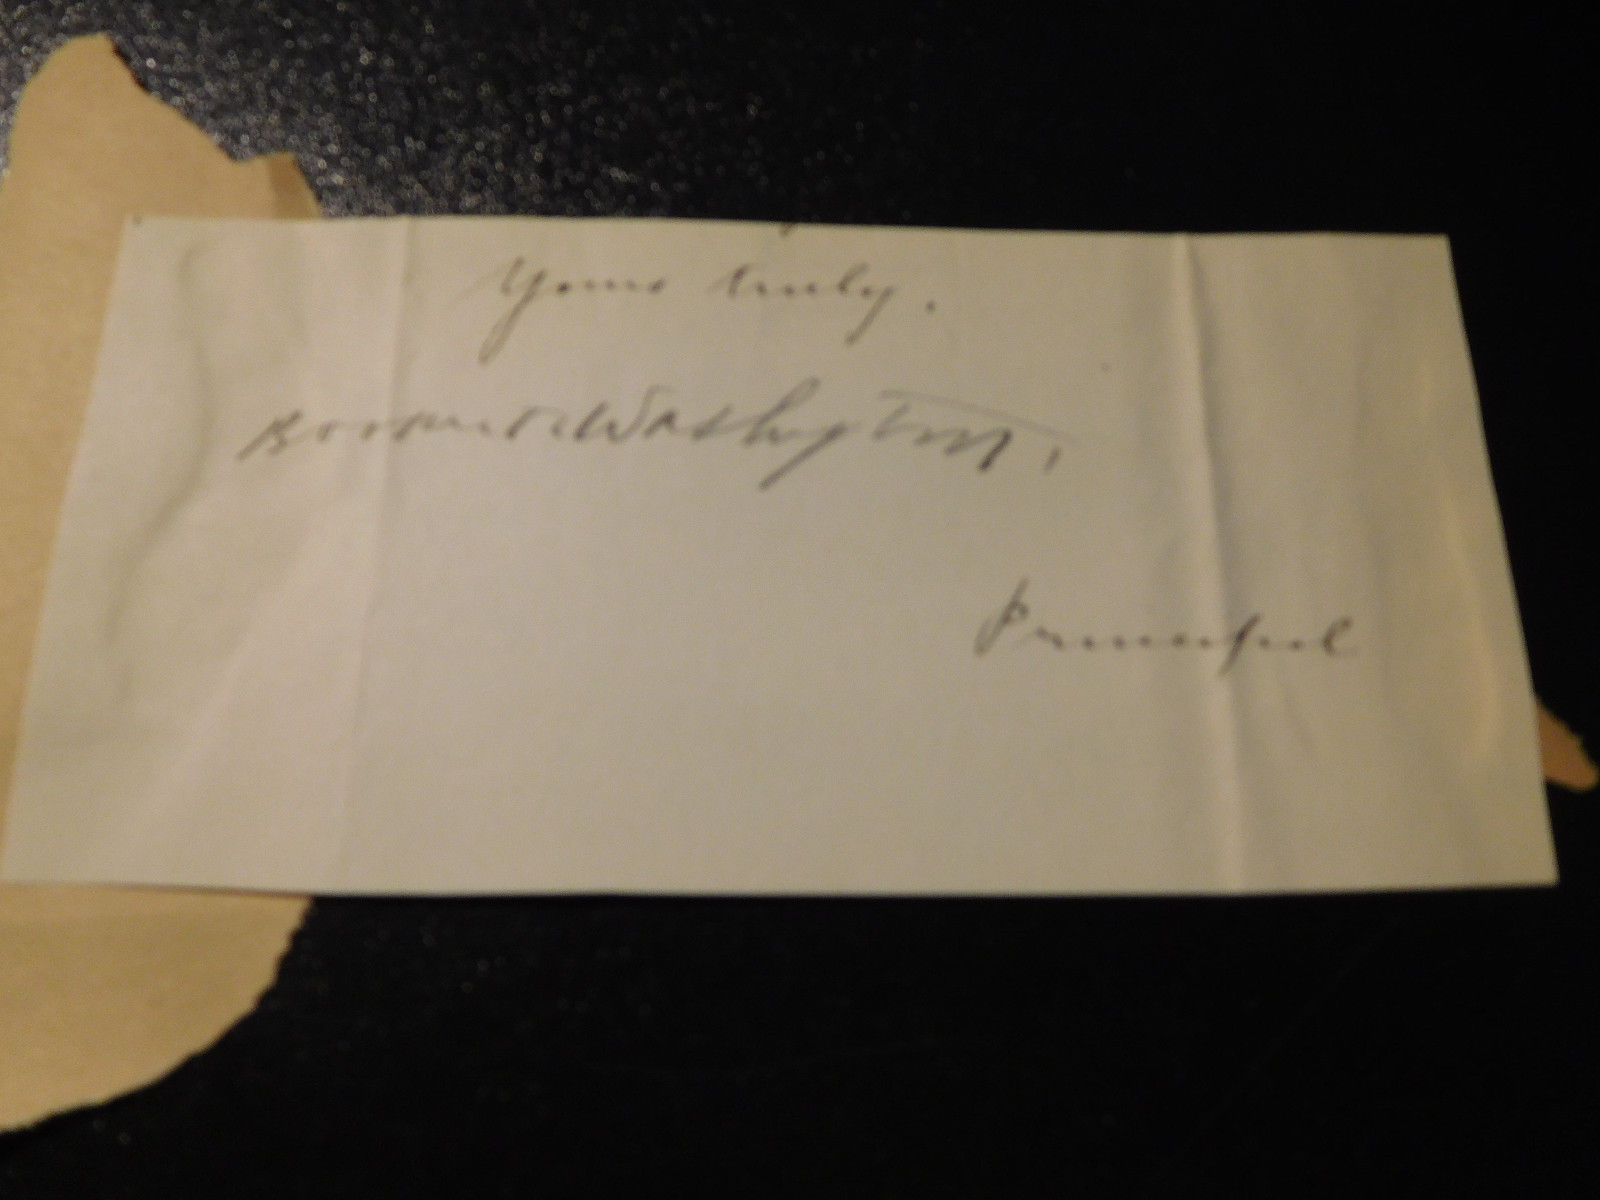 Yours truly.
Booker T. Washington.
Principal